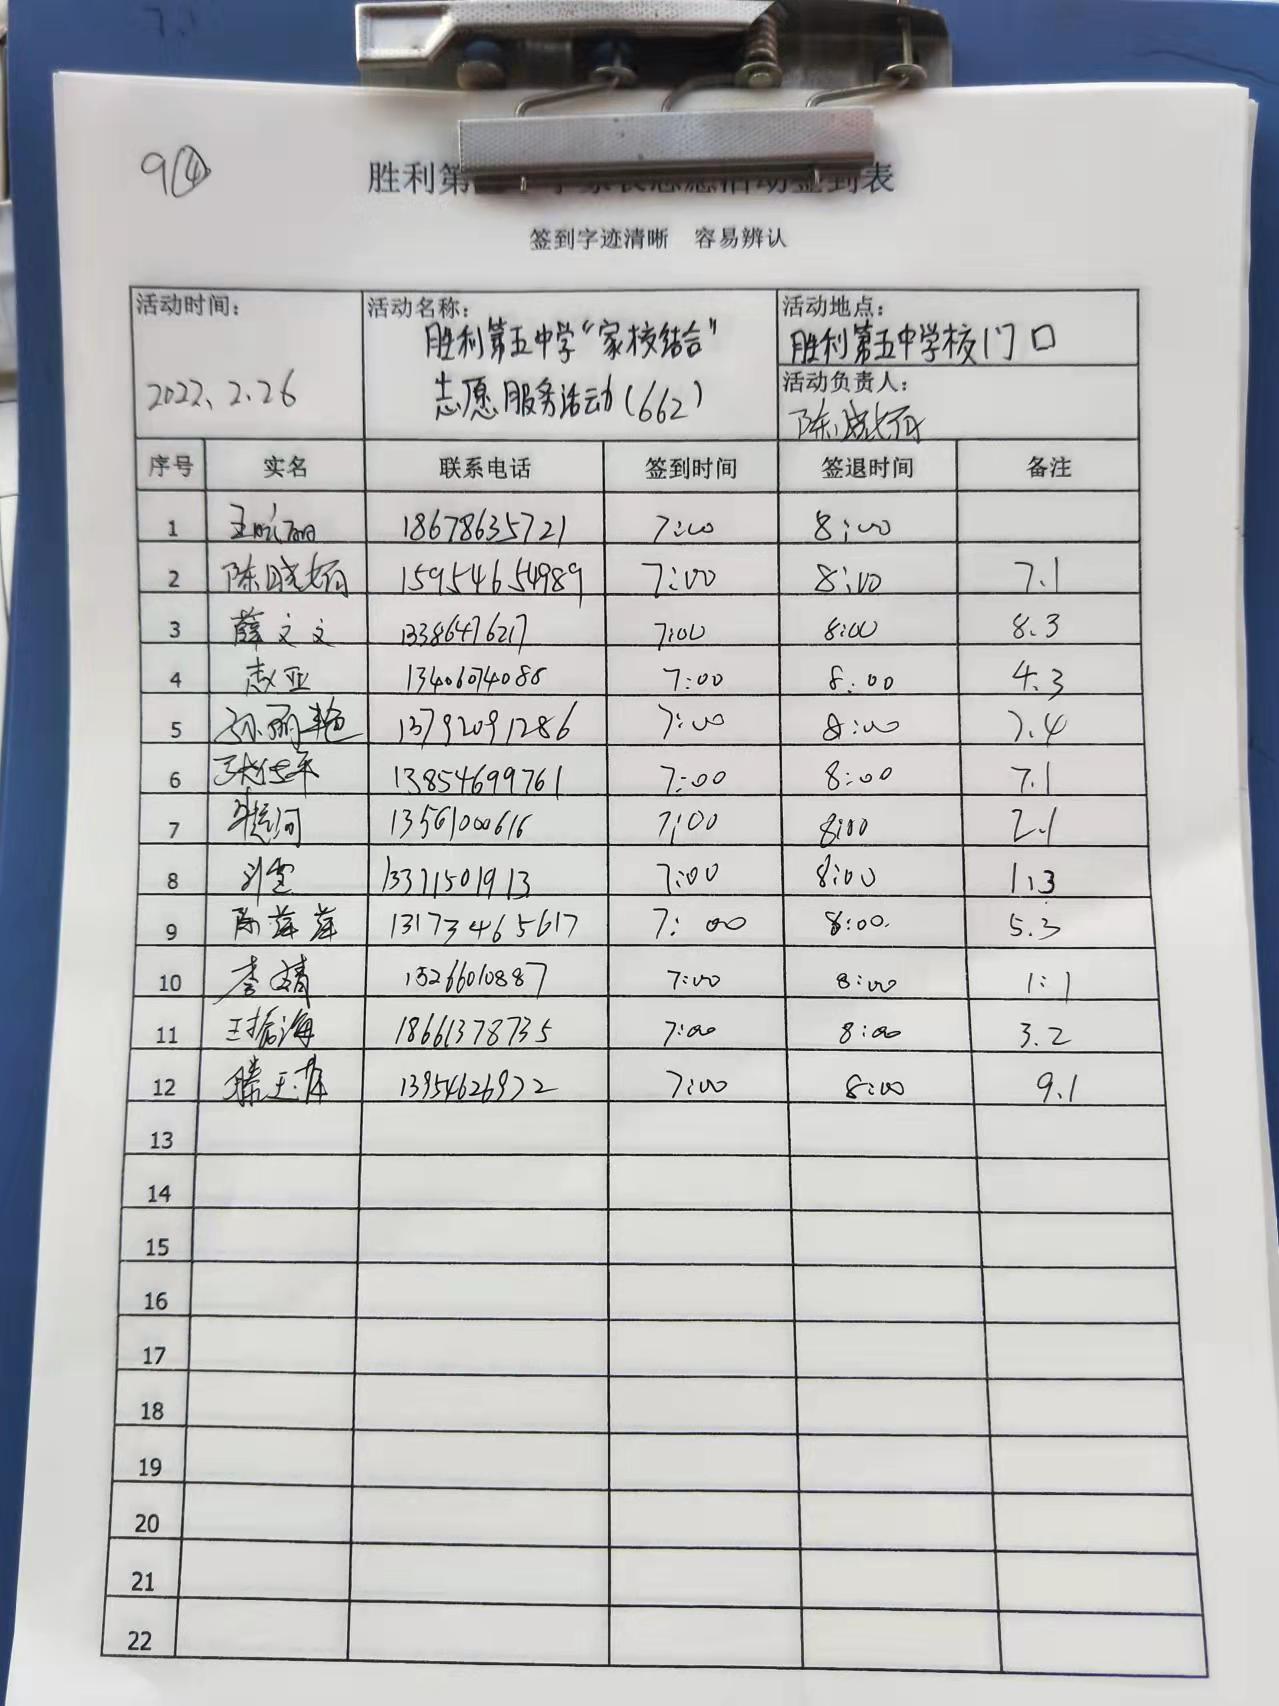 9④
胜利第 活动签到表
签到字迹清晰 容易辨认
活动时间：
2022.2.26
活动名称：
胜利第五中学“家校结合”
志愿服务活动(662)
活动地点：
胜利第五中学校门口
活动负责人：
陈晓
序号 实名 联系电话 签到时间 签退时间 备注
1 王 18678635721 7:00 8:00
2 陈晓 15954654989 7:00 8:00 7.1
3 薛文文 13386476217 7:00 8:00 8.3
4 赵亚 13406074088 7:00 8:00 4.3
5 孙丽艳 13792091286 7:00 8:00 7.4
6 张 13854699761 7:00 8:00 7.1
7 13561000616 7:00 8:00 2.1
8 刘雪 13371501913 7:00 8:00 1.3
9 陈萍萍 13173465617 7:00 8:00. 5.3
10 李婧 15266010887 7:00 8:00 1:1
11 王振海 18661378735 7:00 8:00 3.2
12 滕玉萍 13954626972 7:00 8:00 9.1
13
14
15
16
17
18
19
20
21
22